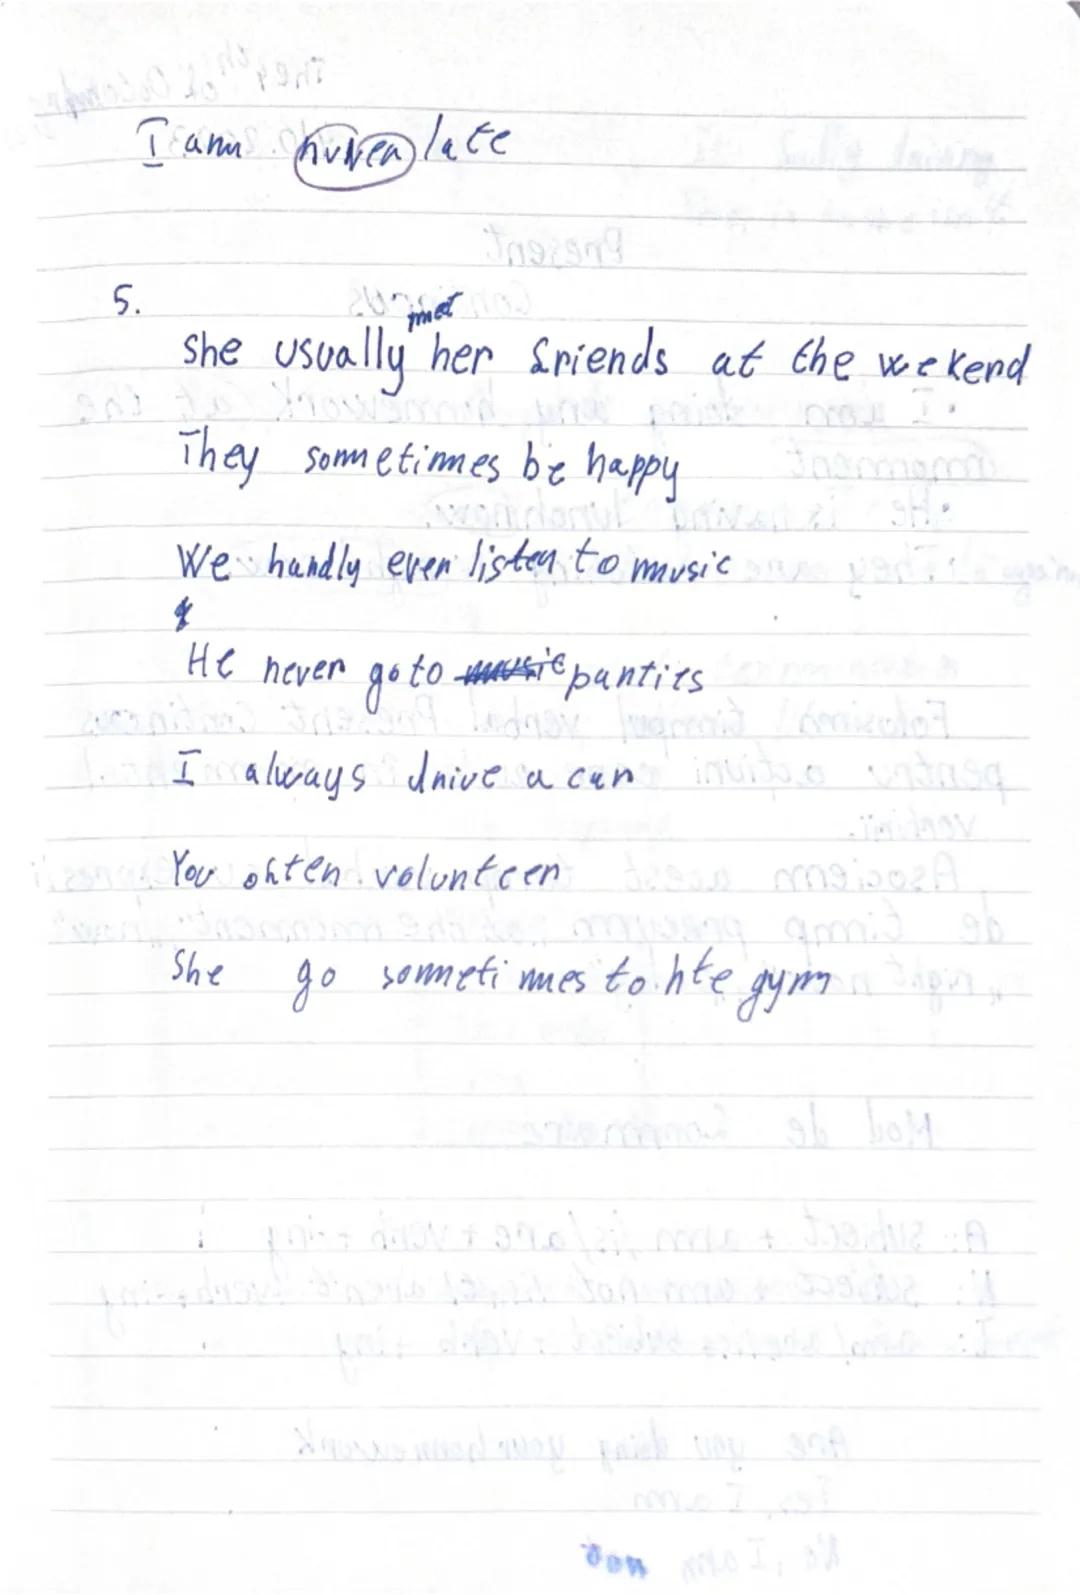 I am never late
5.
met
She usually her friends at the wekend
They sometimes be happy
We hardly ever listen to music
He never go to music parties
I always drive a car
You ohten volunteer
She go sometimes to hte gym